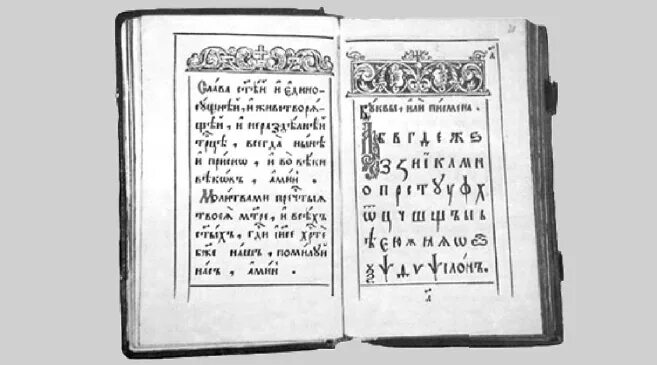 Слава ст҃ѣй и єдино
сꙋщнѣй, и животворѧ
щей, и нераздѣлнѣй
трⷪ҇цѣ, всегда нынѣ
и приснѡ, и во вѣки
вѣкѡвъ, аминь
Молитвами пречⷭ҇тыѧ
твоеѧ мт҃ре, и всѣхъ
ст҃ыхъ, гдⷭ҇и іи҃се хрⷭ҇те
бж҃е нашъ, помилꙋй
насъ, аминь.
Бꙋквы, или писмена.
А Б В Г Д Е Ж Ѕ
З И І К Л М Н
О П Р С Т Ꙋ У Ф Х
Ѿ Ц Ч Ш Щ Ъ Ы Ь
Ѣ Є Ю Ѧ Ѡ
Ѯ Ѱ